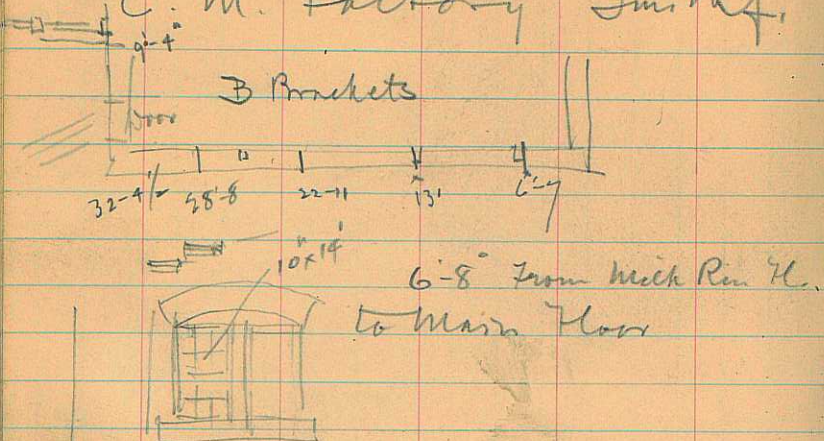 C. M. Factory
9'-4"
B Brackets
Door
32-4½ 28'-8 22-11 13' 6'-7
10"x14"
6'-8" From Milk Rm Fl.
to Main Floor